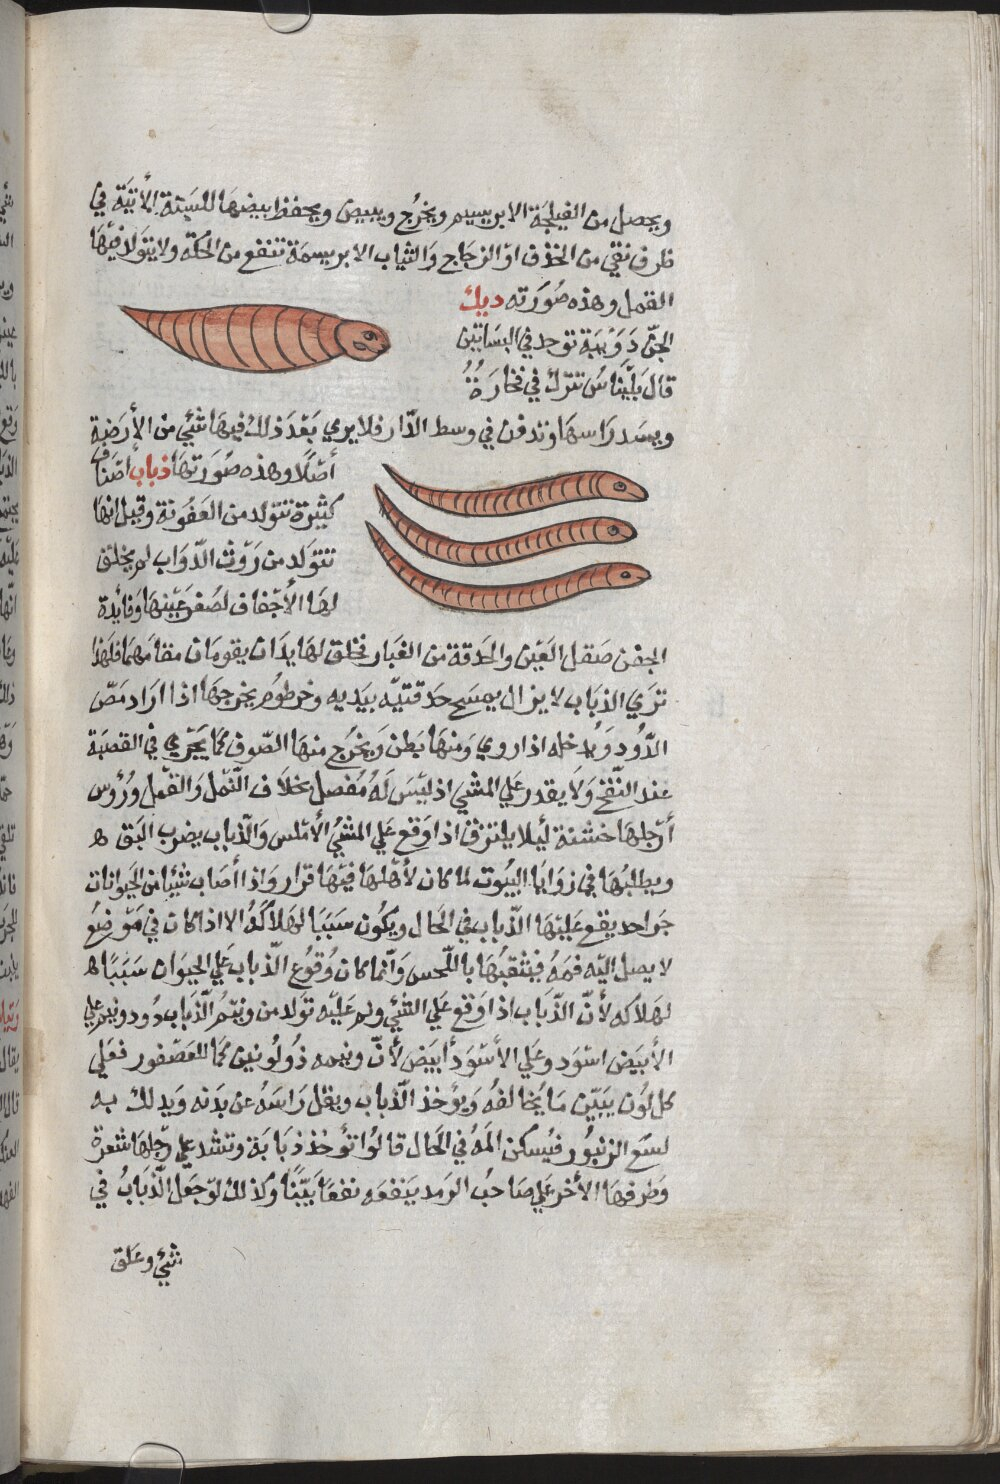 ويحصل من الفيلجة الابريسيم ويخرج ويبيض ويحفظ بيضها للسنة الأتية في
ظرف نقي من الخذف او الزجاج والثياب الابريسمة تنفع من الحكة ولا يتولد فيها
القمل وهذه صورته ديك
الجن دويبة توجد في البساتين
قال بليناس تترك في نخارة
ويسد راسها وتدفن في وسط الدار فلا يري بعد ذلك فيها شئي من الأرضة
أصلا وهذه صورتها ذباب أصناف
كثيرة تتولد من العفونة وقيل انها
تتولد من روث الدواب لم يخلق
لها الأجفاف لصغر عينها وفايدة
الجفن صقل العين والحدقة من الغبار فخلق لها يدان يقومان مقامهما فلهذا
تري الذباب لا يزال يمسح حدقتيه بيديه وخرطوم يخرجها اذا اراد مص
الدود ويدخله اذا روي ومنها بطن ويخرج منها الصوف كما يجري في القصبة
عند النفخ ولا يقدر علي المشي اذ ليس له مفصل بخلاف النمل والقمل ورؤس
أرجلها خشنة ليلا يلتزق اذا وقع علي المشئ الأملس والذباب يضرب البق ه
ويطلبها في زوايا البيوت لما كان لأهلها فيها قرار واذا أصاب شئيا من الحيوانات
جراحد يقع عليها الذباب في الحال ويكون سببا لهلاكه الا اذا كان في موضع
لا يصل اليه فمه فيثقبها باللحس وانما كان وقوع الذباب علي الحيوان سببا ه
لهلاكه لأن الذباب اذا وقع علي الشئي ولم عليه تولد من ونيم الذباب دود ونيم علي
الأبيض اسود وعلي الأسود أبيض لأن ونيمه ذو لونين كما للعصفور فعلي
كل لون يبين ما يخالفه ويؤخذ الذباب وبقل راسه عن بدنه ويدلك به
لسع الزنبور فيسكن المه في الحال قالوا تؤخذ ذبابة وتشد علي رجلها شعرة
وطرفها الأخر علي صاحب الرمد ينفعه نفعا بينا وكذلك لو جعل الذباب في
شئي وعلق